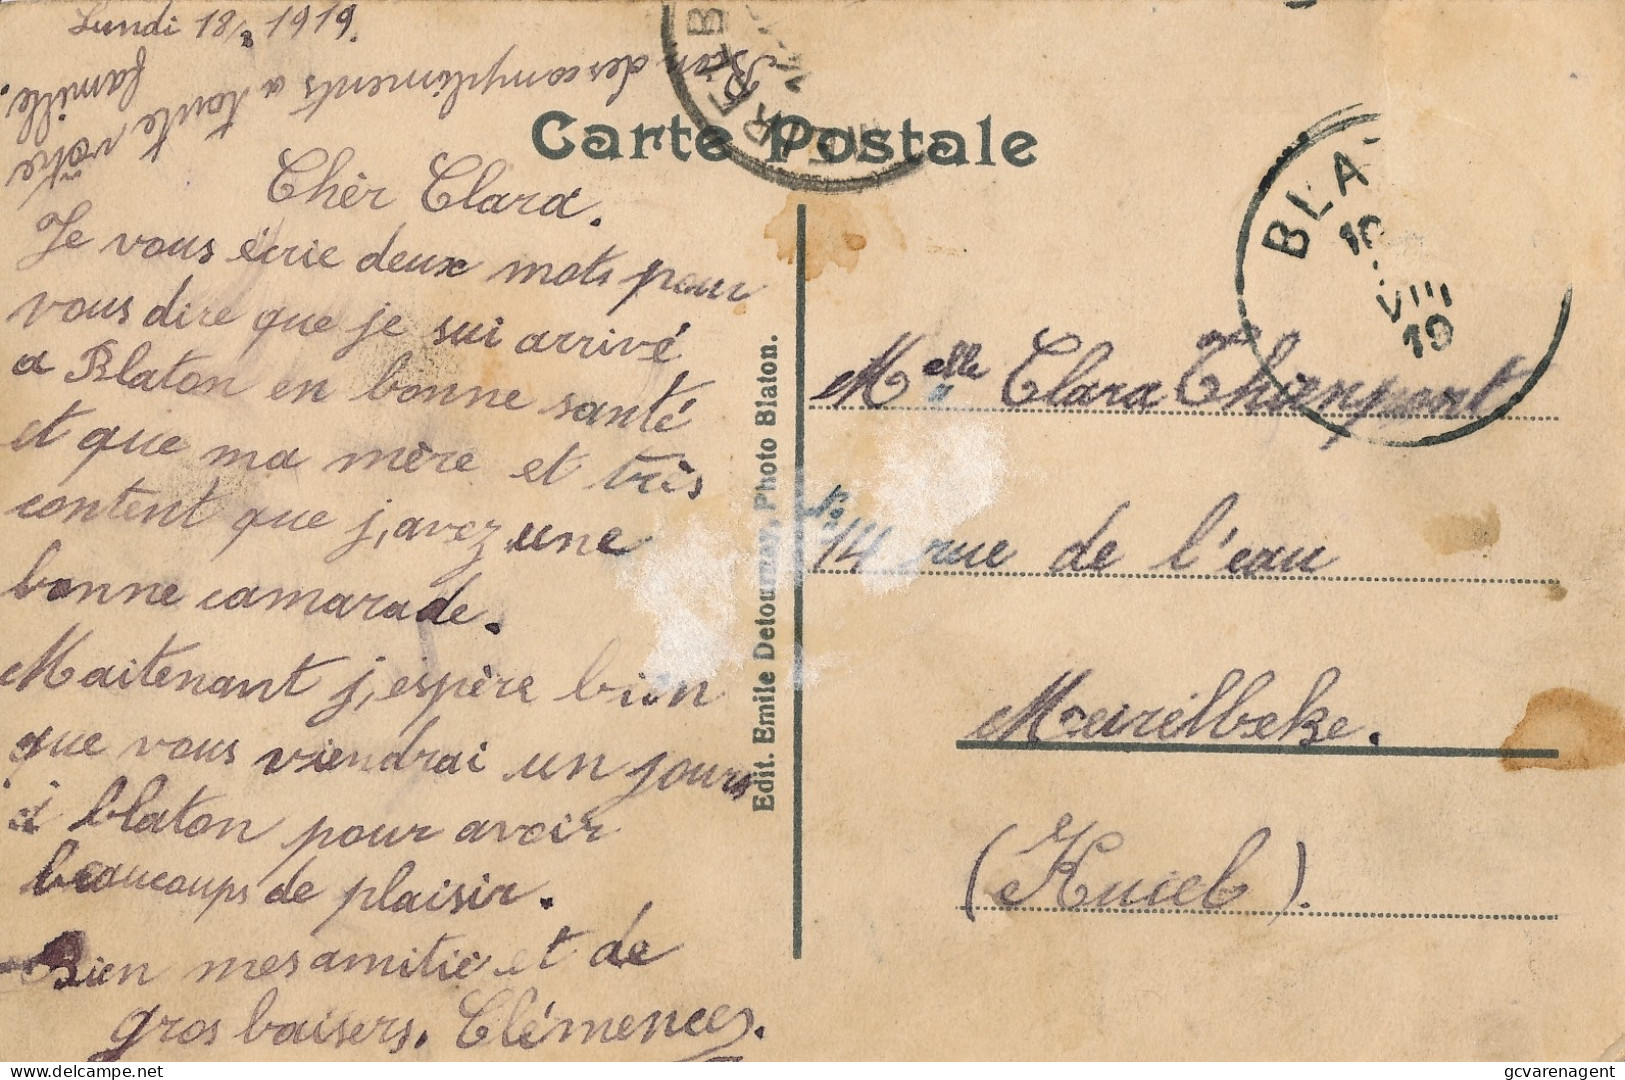 Lundi 18/8 1919.
Bien des compliments a toute votre
famille.
Carte Postale
Chèr Clara.
Je vous écrie deux mots pour
vous dire que je sui arrivé
a Blaton en bonne santé
et que ma mère et très
content que j,avez une
bonne camarade.
Maitenant j,espère bien
que vous viendrai un jours
à blaton pour avoir
beaucoups de plaisir.
Bien mes amitié et de
gros baisers. Clémences.
Edit. Emile Detournay, Photo Blaton.
BLA
VIII
19
Melle Clara
No 14 rue de l'eau
Meirelbeke.
(Kuieb).
gcvarenagent